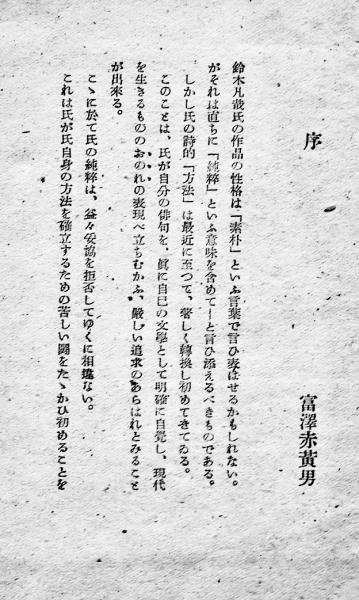 序
富澤赤黃男
鈴木凡哉氏の作品の性格は「素朴」といふ言葉で言ひ表はせるかもしれない。
がそれは直ちに「純粹」といふ意味を含めて――と言ひ添えるべきものである。
しかし氏の詩的「方法」は最近に至つて、著しく轉換し初めてきてゐる。
このことは、氏が自分の俳句を、眞に自己の文學として明確に自覺し、現代
を生きるもののおのれの表現へ立ちむかふ、嚴しい追求のあらはれとみること
が出來る。
こゝに於て氏の純粹は、益々妥協を拒否してゆくに相違ない。
これは氏が氏自身の方法を確立するための苦しい鬪をたゝかひ初めることを